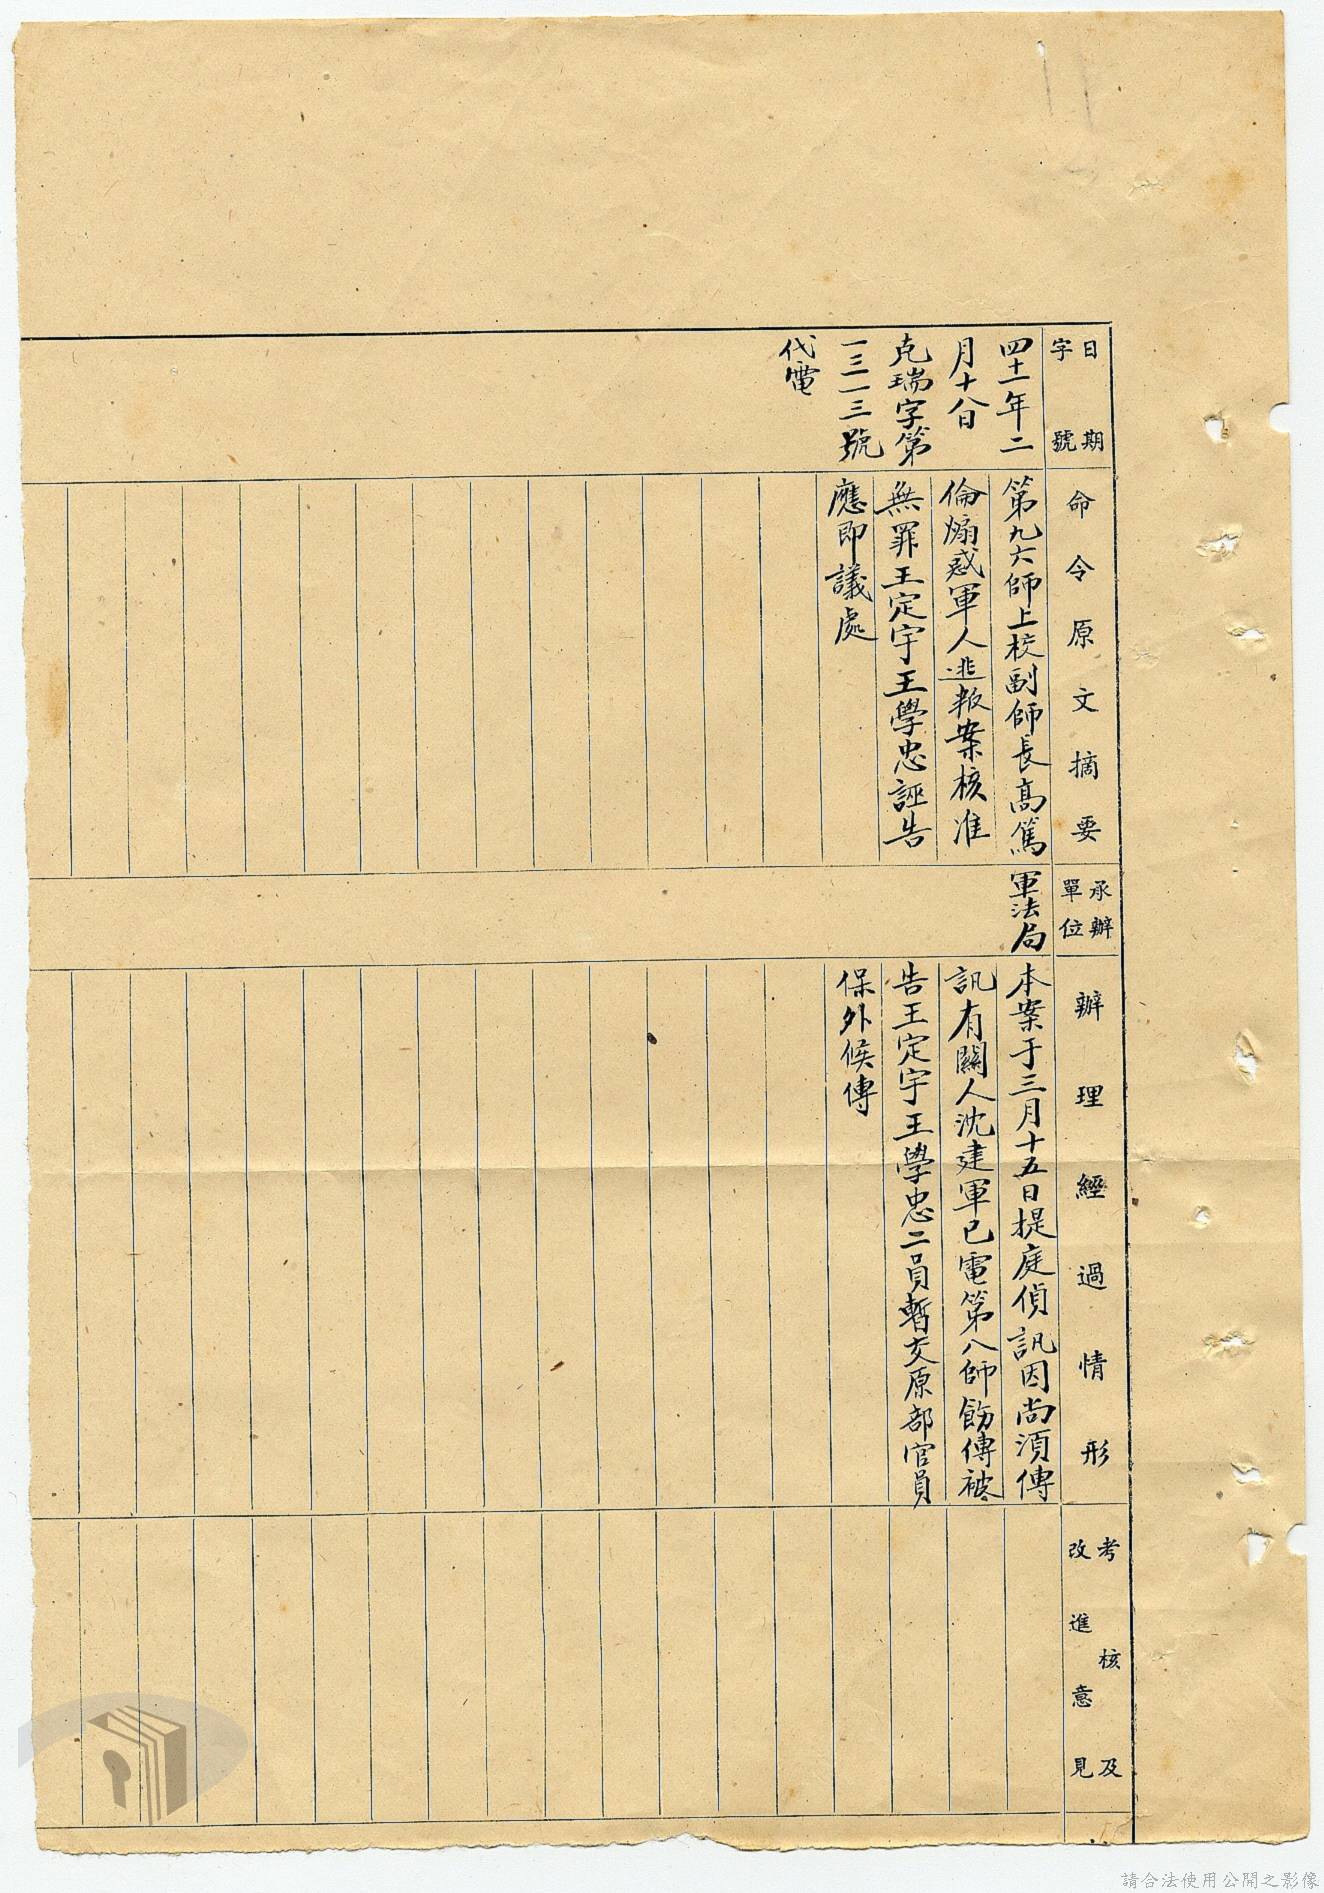 日期
字號
四十一年二
月十八日
克瑞字第
一三一三號
代電
命令原文摘要
第九六師上校副師長高篤
倫煽惑軍人逃叛案核准
無罪王定宇王學忠誣告
應即議處
承辦
單位
軍法局
辦理經過情形
本案于三月十五日提庭偵訊因尚須傳
訊有關人沈建軍已電第八師飭傳被
告王定宇王學忠二員暫交原部官員
保外候傳
考核及
改進意見
請合法使用公開之影像